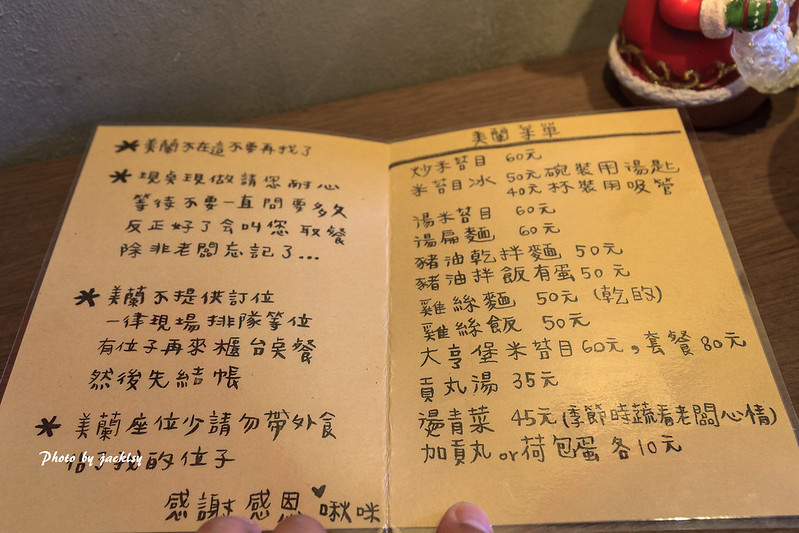 ＊美蘭不在這不要再找了
＊現桌現做請您耐心
等待不要一直問要多久
反正好了會叫您取餐
除非老闆忘記了...
＊美蘭不提供訂位
一律現場排隊等位
有位子再來櫃台桌餐
然後先結帳
＊美蘭座位少請勿帶外食
佔了我的位子
Photo by jacklsy
感謝感恩♥啾咪
美蘭菜單
炒米苔目 60元
米苔目冰 50元碗裝用湯匙
40元杯裝用吸管
湯米苔目 60元
湯扁麵 60元
豬油乾拌麵 50元
豬油拌飯有蛋50元
雞絲麵 50元 (乾的)
雞絲飯 50元
大亨堡米苔目60元，套餐80元
貢丸湯 35元
燙青菜 45元(季節時蔬看老闆心情)
加貢丸or荷包蛋各10元